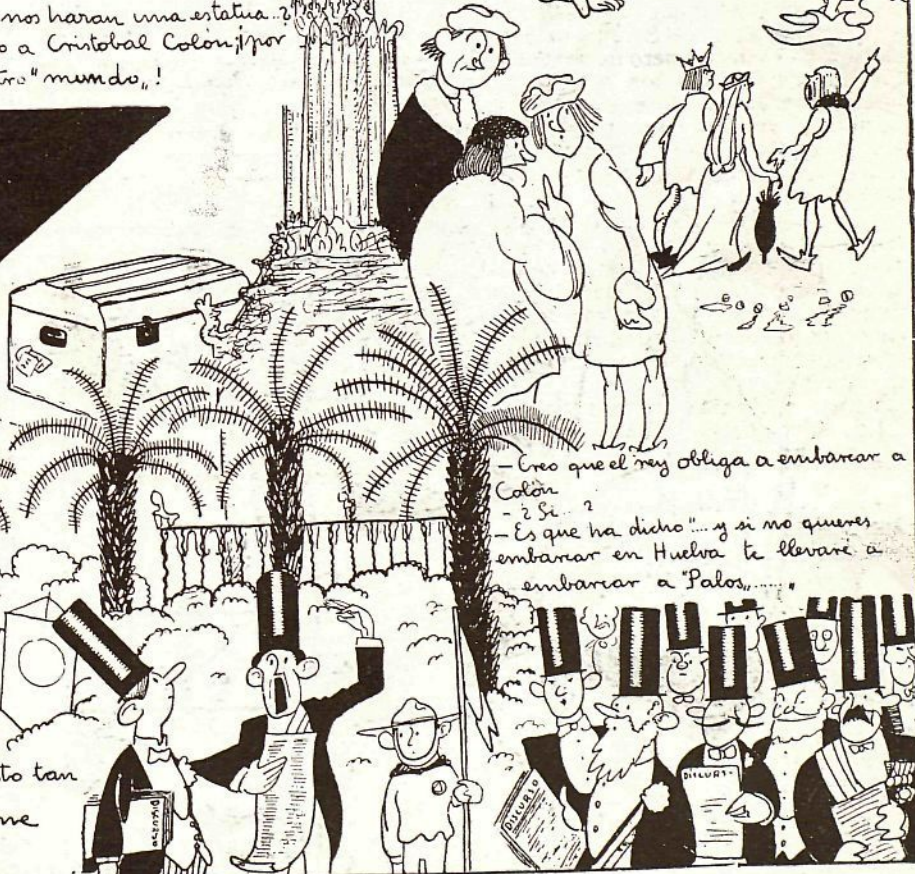 nos haran una estatua..?
o a Cristobal Colón; ¡por
tro" mundo„!
- Creo que el rey obliga a embarcar a
Colón
- ¿Si... ?
- Es que ha dicho "... y si no quieres
embarcar en Huelva te llevare a
embarcar a "Palos„...... "
to tan
me
DISCURSO
DISCURSO
DISCURS-